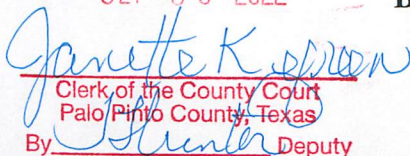 2022
Janette K. Green
Clerk of the County Court
Palo Pinto County, Texas
By Deputy